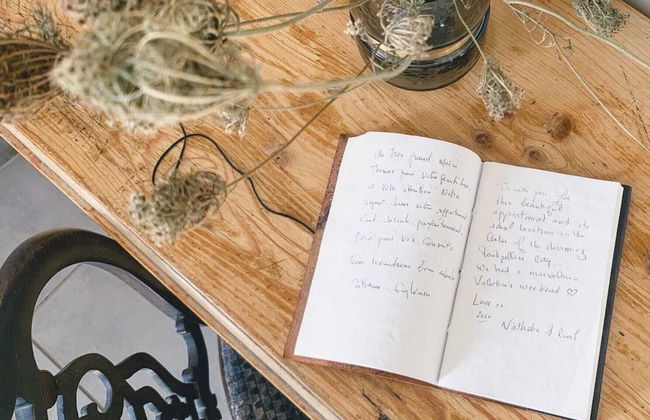 Un Très grand merci
pour Votre gentillesse
et Votre attention. Notre
séjour dans votre appartement
s'est déroulé parfaitement.
pour vos conseils.
Nous reviendrons
Sylvain
Thank you for
this beautiful
appartment and its
ideal location in the
Center of the charming
Montpellier city
We had a marvelous
Valentin's weekend ♡
Love
Nathalie &